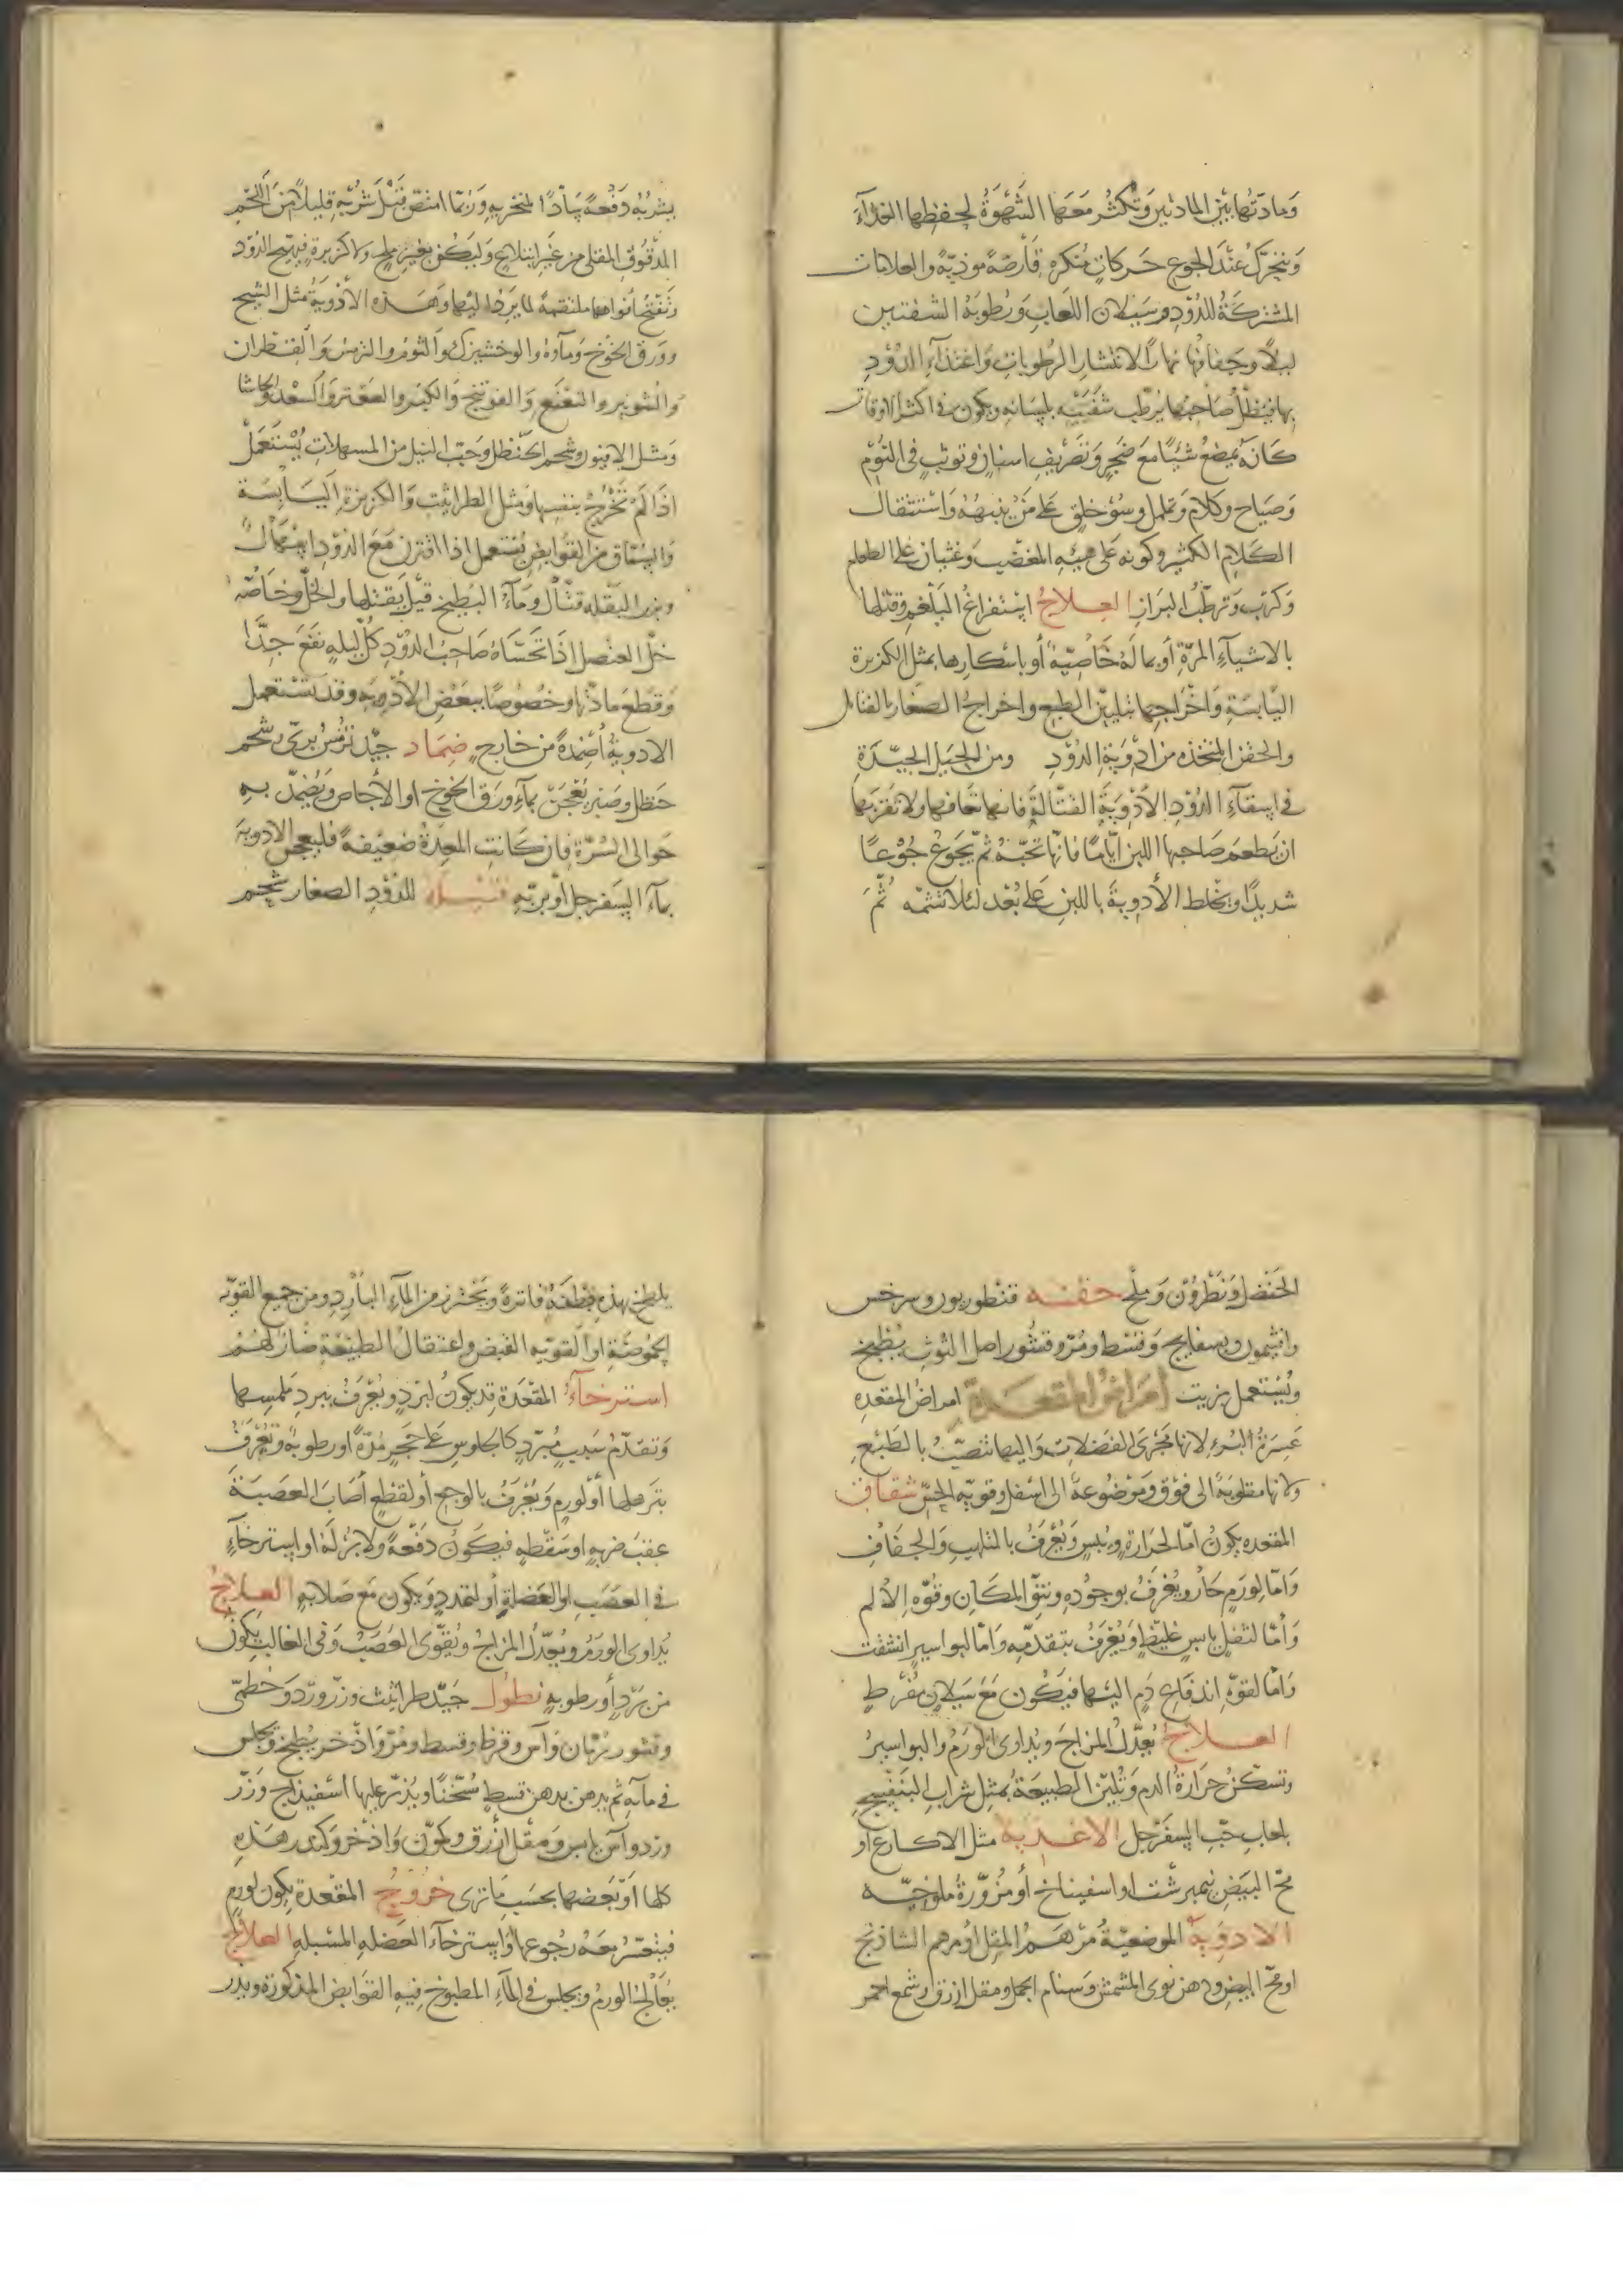 ومادتها بين المادتين وتكثر معها الشهوة لحفظها الغذاء
ويتحرك عند الجوع حركات منكرة قارصة موذية والعلامات
المشتركة للدود سيلان اللعاب ورطوبة الشفتين
ليلا وجفافها نهارا لانتشار الرطوبات واغتذاء الدود
بها فيظل صاحبها يرطب شفتيه بلسانه ويكون في اكثر الاوقات
كانه يمضغ شيئا مع ضجر وتصريف اسنان وتوثب في النوم
وصياح وكلام وتململ وسوء خلق على من ينبهه واستثقال
الكلام الكثير وكونه على هيئة المغضب وغثيان على الطعام
وكرب وترطب البراز العلاج استفراغ البلغم وقتلها
بالاشياء المرة او بما له خاصية او باسكارها بمثل الكزبرة
اليابسة واخراجها بتليين الطبع واخراج الصغار بالفتائل
والحقن المتخذه من ادوية الدود ومن الحيل الجيدة
في اسقاء الدود الادوية القتالة فانها تعافها ولا تقربها
ان يطعم صاحبها اللبن اياما فانها تحبه ثم يجوع جوعا
شديدا ويخلط الأدوية باللبن على بعد لئلا تشمه ثم
يشربه دفعة سادا لمنخريه وربما امتص قبل شربه قليلا من اللحم
المدقوق المقلى من غير ابتلاع وليكن بغير ملح ولا كزبرة فيهيج الدود
وتفتح افواهها ملتقمة لما يرد اليها وهذه الادوية مثل الشيح
وورق الخوخ وماؤه والوخشيزك والثوم والترمس والقطران
والشونيز والنعنع والفوتنج والكبر والصعتر والسعد والحاشا
ومثل الافتيمون وشحم الحنظل وحب النيل من المسهلات يستعمل
اذا لم تخرج بنفسها ومثل الطراثيث والكزبرة اليابسة
والسماق من القوابض يستعمل اذا اقترن مع الدود اسهال
وبزر البقله قتال وماء البطيخ قيل يقتلها والخل وخاصة
خل العنصل اذا تحساه صاحب الدود كل ليله نفع جدا
وقطع مادتها وخصوصا ببعض الأدويه وقد تستعمل
الادوية أضمدة من خارج ضماد جيد ترمس بري وشحم
حنظل وصبر يعجن بماء ورق الخوخ او الأجاص ويضمد به
حوالى السرة فان كانت المعدة ضعيفة فليعجن الادوية
بماء السفرجل او بربه فتيلة للدود الصغار شحم
الحنضل ونطرون وملح حقنه قنطوريون وسرخس
وافتيمون وبسفايج وقسط ومر وقشور اصل التوث يطبخ
ويستعمل بزيت أمراض المقعدة امراض المقعده
عسرة البرء لانها مجرى الفضلات واليها تنصب بالطبع
ولانها مقلوبة الى فوق وموضوعة الى اسفل وقوية الحس شقاق
المقعده يكون اما لحرارة ويبس ويعرف بالتلهب والجفاف
واما لورم حار ويعرف بوجوده ونتو المكان وقوة الألم
وأما لثفل يابس غليظ ويعرف بتقدمه واما لبواسير انشقت
واما لقوة اندفاع دم اليها فيكون مع سيلان مفرط
العلاج يعدل المزاج ويداوى الورم والبواسير
وتسكن حرارة الدم وتلين الطبيعة بمثل شراب البنفسج
بلعاب حب السفرجل الاغذية مثل الاكارع او
مح البيض نيمبرشت او اسفيناخ أو مزورة ملوخيه
الادوية الموضعية مرهم المقل او مرهم الشاذنج
او مح البيض ودهن نوى المشمش وسنام الجمل ومقل ازرق وشمع احمر
يلطخ بهذه بقطنة فاترة ويحترز من الماء البارد ومن جميع القويه
الحموضة او القويه القبض واعتقال الطبيعة ضار لهم
استرخاء المقعدة قد يكون لبرد ويعرف ببرد ملمسها
وتقدم سبب مبرد كالجلوس على حجر مدة او رطوبة ويعرف
بترهلها أو لورم ويعرف بالوجع أو لقطع أصاب العصبة
عقب ضربه او سقطه فيكون دفعة ولا برء له او استرخاء
في العصب او العضلة او لتمدد ويكون مع صلابة العلاج
يداوى الورم ويعدل المزاج ويقوى العصب وفى الغالب يكون
من برد أو رطوبه نطول جيد طراثيث وزر ورد وخطمى
وقشور رمان وآس وقرظ وقسط ومر واذخر يطبخ ويجلس
في مائه ثم يدهن بدهن قسط مسخنا ويذر عليها اسفيذاج وزر
ورد وآس يابس ومقل أزرق وكمون واذخر وكندر هذه
كلها أو بعضها بحسب ما ترى خروج المقعدة يكون لورم
فيتعسر معه رجوعها او استرخاء العضله المشيلة العلاج
يعالج الورم ويجلس في الماء المطبوخ فيه القوابض المذكورة ويذر